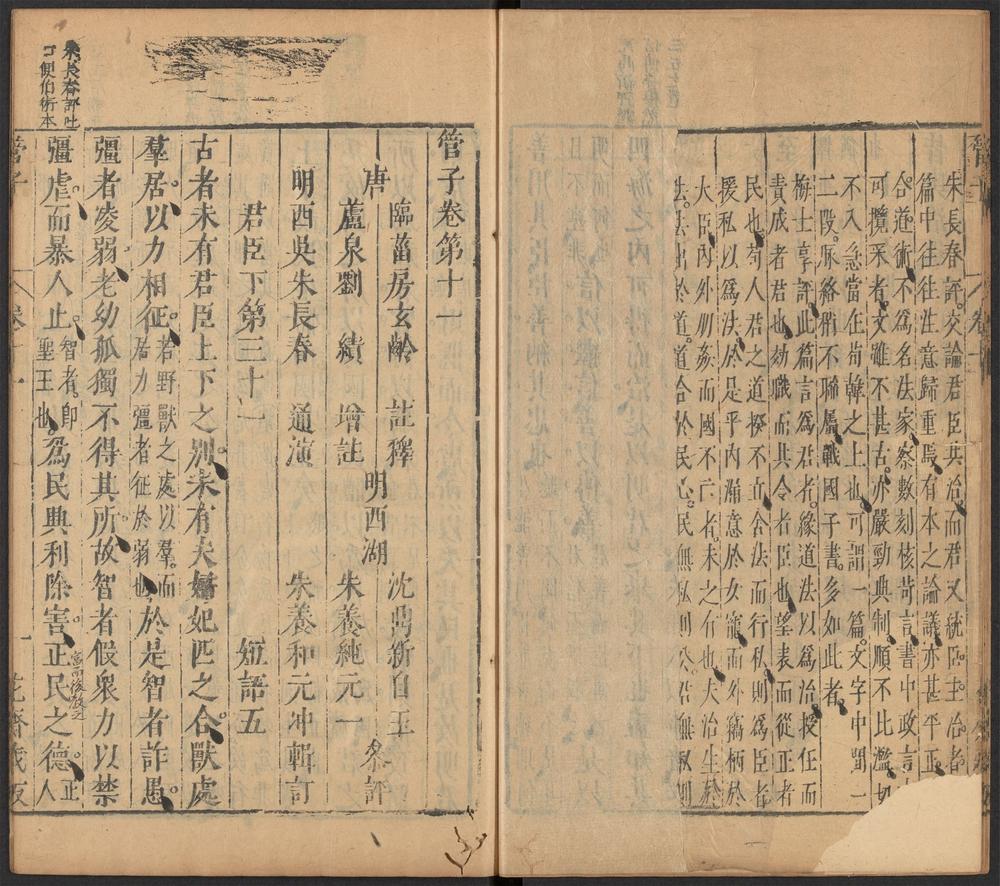 朱長春評交論君臣共治而君又統臣主治者
篇中往往注意歸重焉有本之論議亦甚平正
合道術不爲名法家察數刻核苛言書中政言
可攬采者文雖不甚古亦嚴勁典制順不比濫如
不入彀當在荀韓之上也可謂一篇文字中間一
二段脈絡稍不聯屬戰國子書多如此者
梅士享評此篇言爲君者緣道法以爲治授任而
責成者君也効職而共令者臣也望表而從正者
民也苟人君之道揆不立舍法而行私則爲臣者
援私以爲法於是乎內漏意於女寵而外竊柄於
大臣內外朋姦而國不亡者未之有也夫治生於
法法出於道道合於民心民無私則公君無私則
管子卷第十一
唐 臨菑房玄齡 註釋
蘆泉劉 績 增註
明西吳朱長春 通演
明西湖 沈鼎新自玉
朱養純元一 叅評
朱養和元冲輯訂
君臣下第三十一 短語五
古者未有君臣上下之別未有夫婦妃匹之合獸處
羣居以力相征若野獸之處以羣而居力彊者征於弱也於是智者詐愚
彊者凌弱老幼孤獨不得其所故智者假眾力以禁
彊虐而暴人止智者即聖王也爲民興利除害正民之德正人
富而後敎之
朱長春評吐
口便伯術本
管子 卷十一 一 花齋藏板